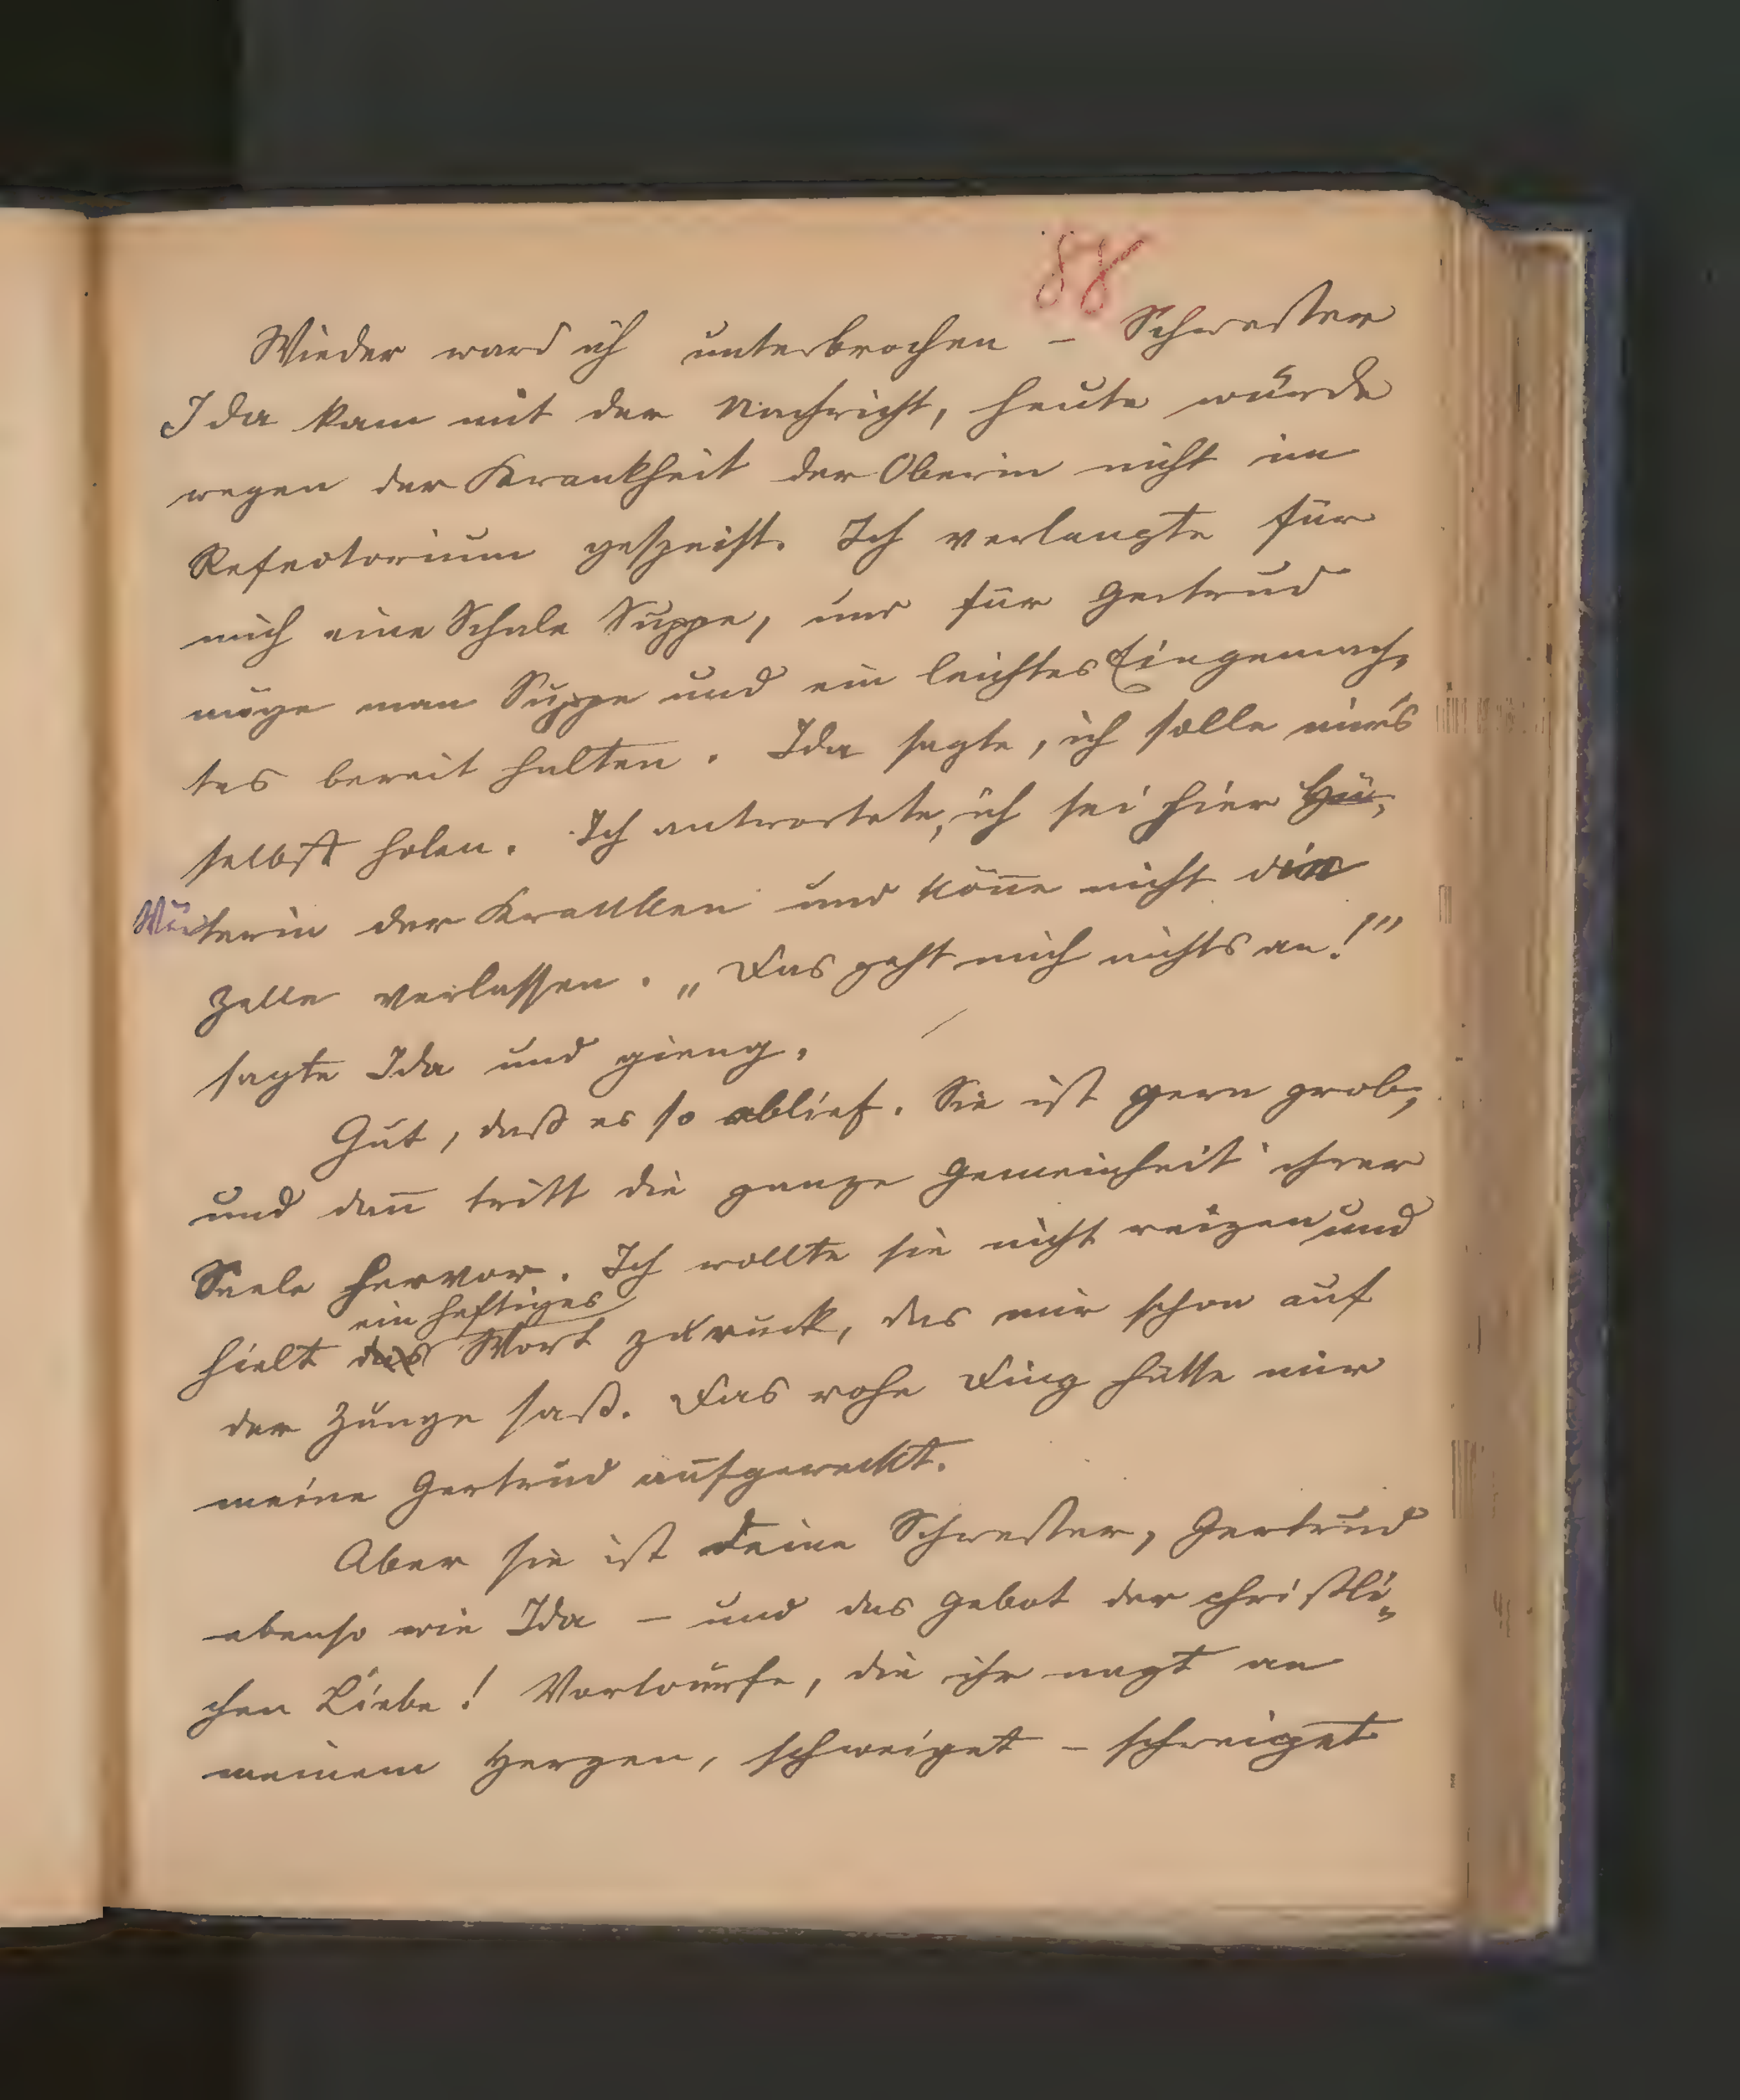 88
Wieder ward ich unterbrochen – Schwester
Ida kam mit der Nachricht, heute würde
wegen der Krankheit der Oberin nicht im
Refectorium gespeist. Ich verlangte für
mich eine Schale Suppe, und für Gertrud
möge man Suppe und ein leichtes Eingemach-
tes bereit halten. Ida sagte, ich solle mir's
selbst holen. Ich antwortete, ich sei hier Hü-
Wärterin der Kranken und könne nicht die
Zelle verlassen. „Das geht mich nichts an!"
sagte Ida und gieng.
Gut, daß es so ablief. Sie ist gern grob,
und dann tritt die ganze Gemeinheit ihrer
Seele hervor. Ich wollte sie nicht reizen und
ein heftiges
hielt das Wort zurück, das mir schon auf
der Zunge saß. Das rohe Ding hätte mir
meine Gertrud aufgeweckt.
Aber sie ist deine Schwester, Gertrud
ebenso wie Ida – und das Gebot der christli-
chen Liebe! Vorwürfe, die ihr nagt an
meinem Herzen, schweiget – schweiget